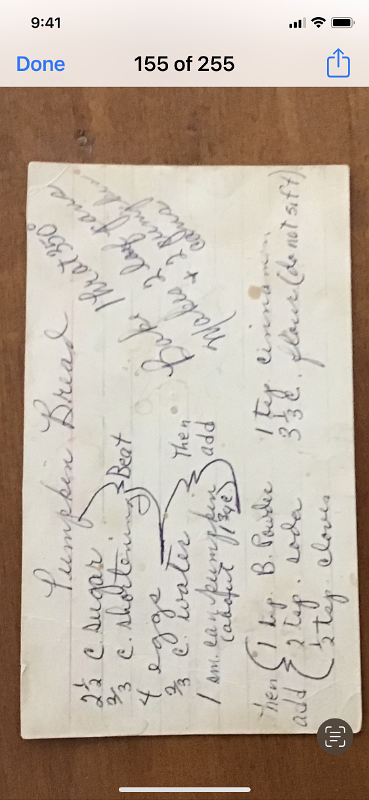 9:41
Done
155 of 255
Pumpkin Bread
Heat 350°
Bake 2 loaf pans
Makes
2 1/2 c. sugar
2/3 c. shortening Beat
4 eggs
2/3 c. water Then
add
1 sm. can pumpkin
(about
Then
add
1 tsp. B. Powder 1 tsp cinnamon
2 tsp. soda 3 1/3 c. flour (do not sift)
1/2 tsp cloves